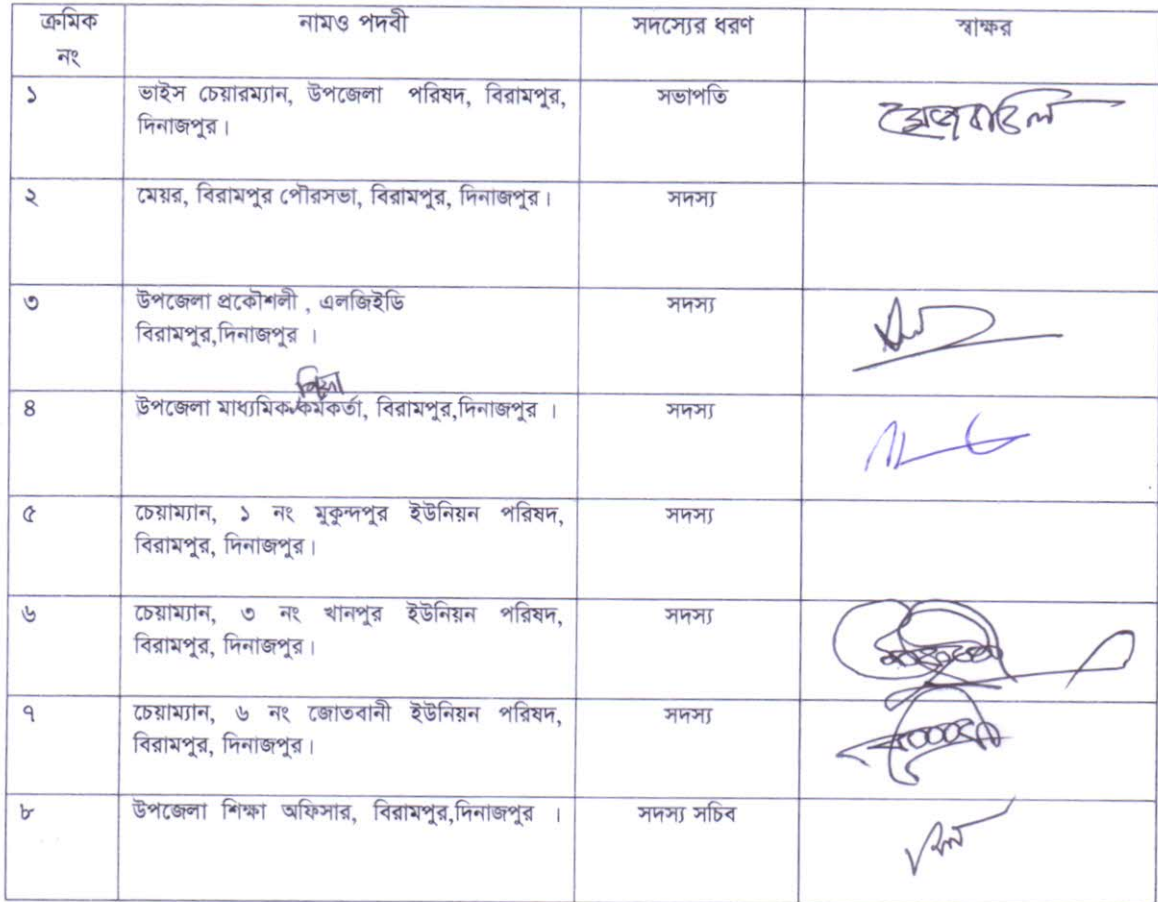 ক্রমিক নং নামও পদবী সদস্যের ধরণ স্বাক্ষর
১ ভাইস চেয়ারম্যান, উপজেলা পরিষদ, বিরামপুর, সভাপতি
দিনাজপুর।
২ মেয়র, বিরামপুর পৌরসভা, বিরামপুর, দিনাজপুর। সদস্য
৩ উপজেলা প্রকৌশলী , এলজিইডি সদস্য
বিরামপুর,দিনাজপুর ।
শিক্ষা
৪ উপজেলা মাধ্যমিক কর্মকর্তা, বিরামপুর,দিনাজপুর । সদস্য
৫ চেয়াম্যান, ১ নং মুকুন্দপুর ইউনিয়ন পরিষদ, সদস্য
বিরামপুর, দিনাজপুর।
৬ চেয়াম্যান, ৩ নং খানপুর ইউনিয়ন পরিষদ, সদস্য
বিরামপুর, দিনাজপুর।
৭ চেয়াম্যান, ৬ নং জোতবানী ইউনিয়ন পরিষদ, সদস্য
বিরামপুর, দিনাজপুর।
৮ উপজেলা শিক্ষা অফিসার, বিরামপুর,দিনাজপুর । সদস্য সচিব